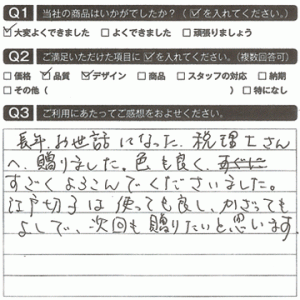 Q1 当社の商品はいかがでしたか?(☑を入れてください。)
☑大変よくできました □よくできました □頑張りましょう
Q2 ご満足いただけた項目に☑を入れてください。(複数回答可)
□価格 ☑品質 ☑デザイン □商品 □スタッフの対応 □納期
□その他( ) □特になし
Q3 ご利用にあたってご感想をおよせください。
長年、お世話になった、税理士さん
へ、贈りました。色も良く、
すごくよろこんでくださいました。
江戸切子は使っても良し、かざっても
よしで、次回も贈りたいと思います